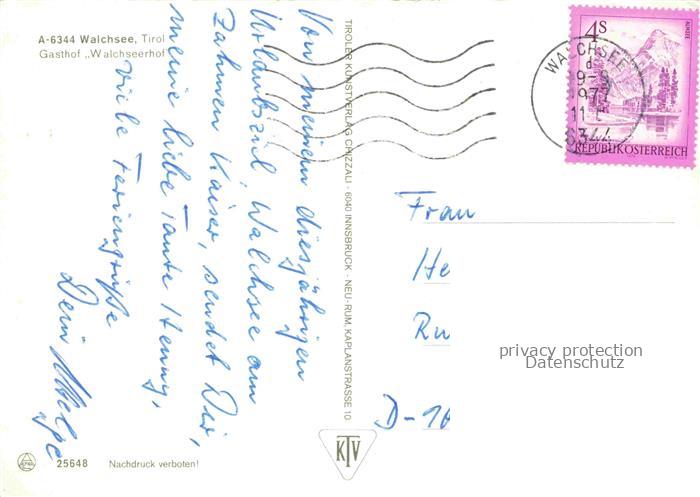 A-6344 Walchsee, Tirol
Gasthof „Walchseerhof"
Von meinem diesjährigen
Urlaubsziel Walchsee am
Zahmen Kaiser, sendet Dir,
meine liebe Tante Henny,
viele Feriengrüße
Dein
25648 Nachdruck verboten!
TIROLER KUNSTVERLAG CHIZZALI · 6040 INNSBRUCK - NEU-RUM, KAPLANSTRASSE 10
KTV
4S
ALMSEE
REPUBLIK ÖSTERREICH
WALCHSEE
6344
Frau
He
Ru
D-10
privacy protection
Datenschutz